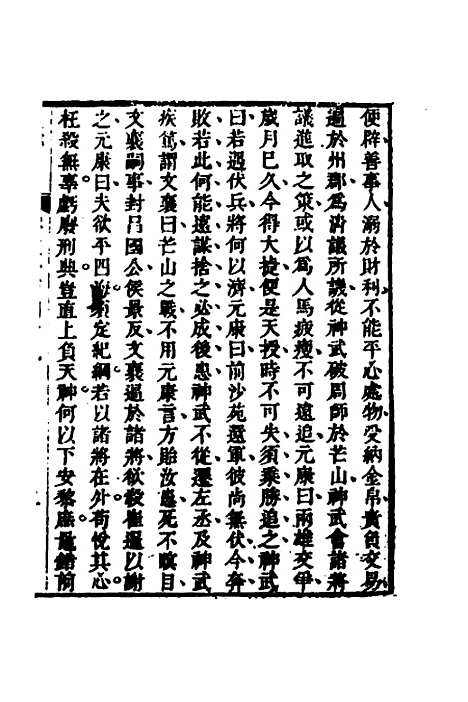 便辟善事人溺於財利不能平心處物受納金帛責負交易
遍於州郡爲淸議所譏從神武破周師於芒山神武會諸將
議進取之策或以爲人馬疲瘦不可遠追元康曰兩雄交爭
歲月巳久今得大捷便是天授時不可失須乘勝追之神武
曰若遇伏兵將何以濟元康曰前沙苑還軍彼尙無伏今奔
敗若此何能遠謀捨之必成後患神武不從還左丞及神武
疾篤謂文襄曰芒山之戰不用元康言方貽汝患死不瞑目
文襄嗣事封昌國公侯景反文襄逼於諸將欲殺崔暹以謝
之元康曰夫欲平四海須定紀綱若以諸將在外苟悅其心
枉殺無辜虧廢刑典豈直上負天神何以下安黎庶晁錯前